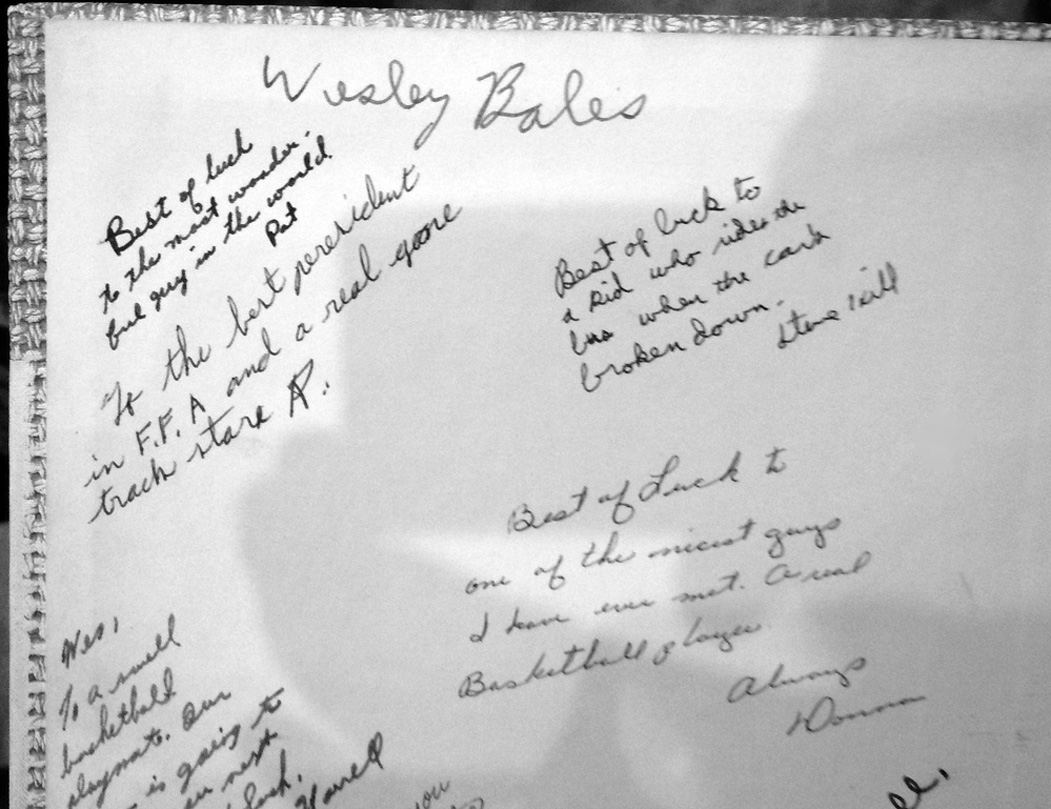 Wesley Bales
Best of luck
to the most wonder-
ful guy in the world.
Pat
To the best president
in F.F.A and a real gone
track stare
Best of luck to
a kid who rides the
bus when the cark
broken down.
Steve
Best of Luck to
one of the nicest guys
I have ever met. A real
Basketball player
Always
Donna
Wes,
To a swell
basketball
playmate. Our
is going to
next
luck.
Harrell
you